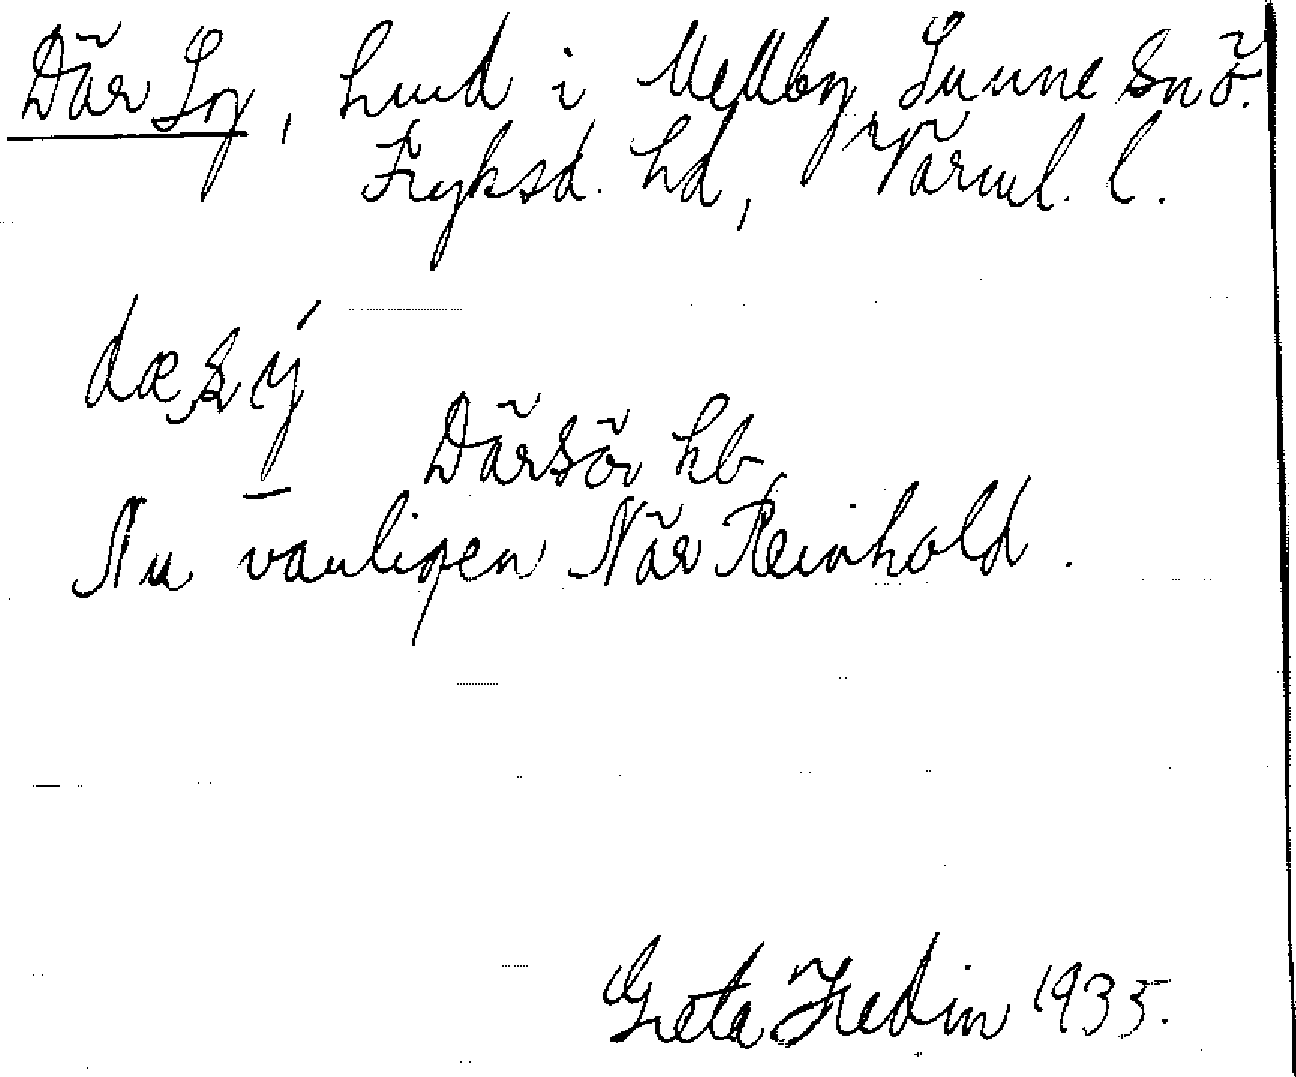 Där Sy, hmd i Mellby, Sunne sn Ö.
Fryksd. hd, Värml. l.
dæ sý̱
Där Sör hb
Nu vanligen När Reinhold.
Greta Hedin 1935.